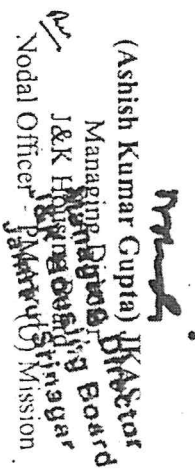 (Ashish Kumar Gupta) JKAS
Managing Director
J&K Housing Board
Nodal Officer - PMAY (U) Mission
Managing Director
J&K Housing Board
Jammu/Srinagar